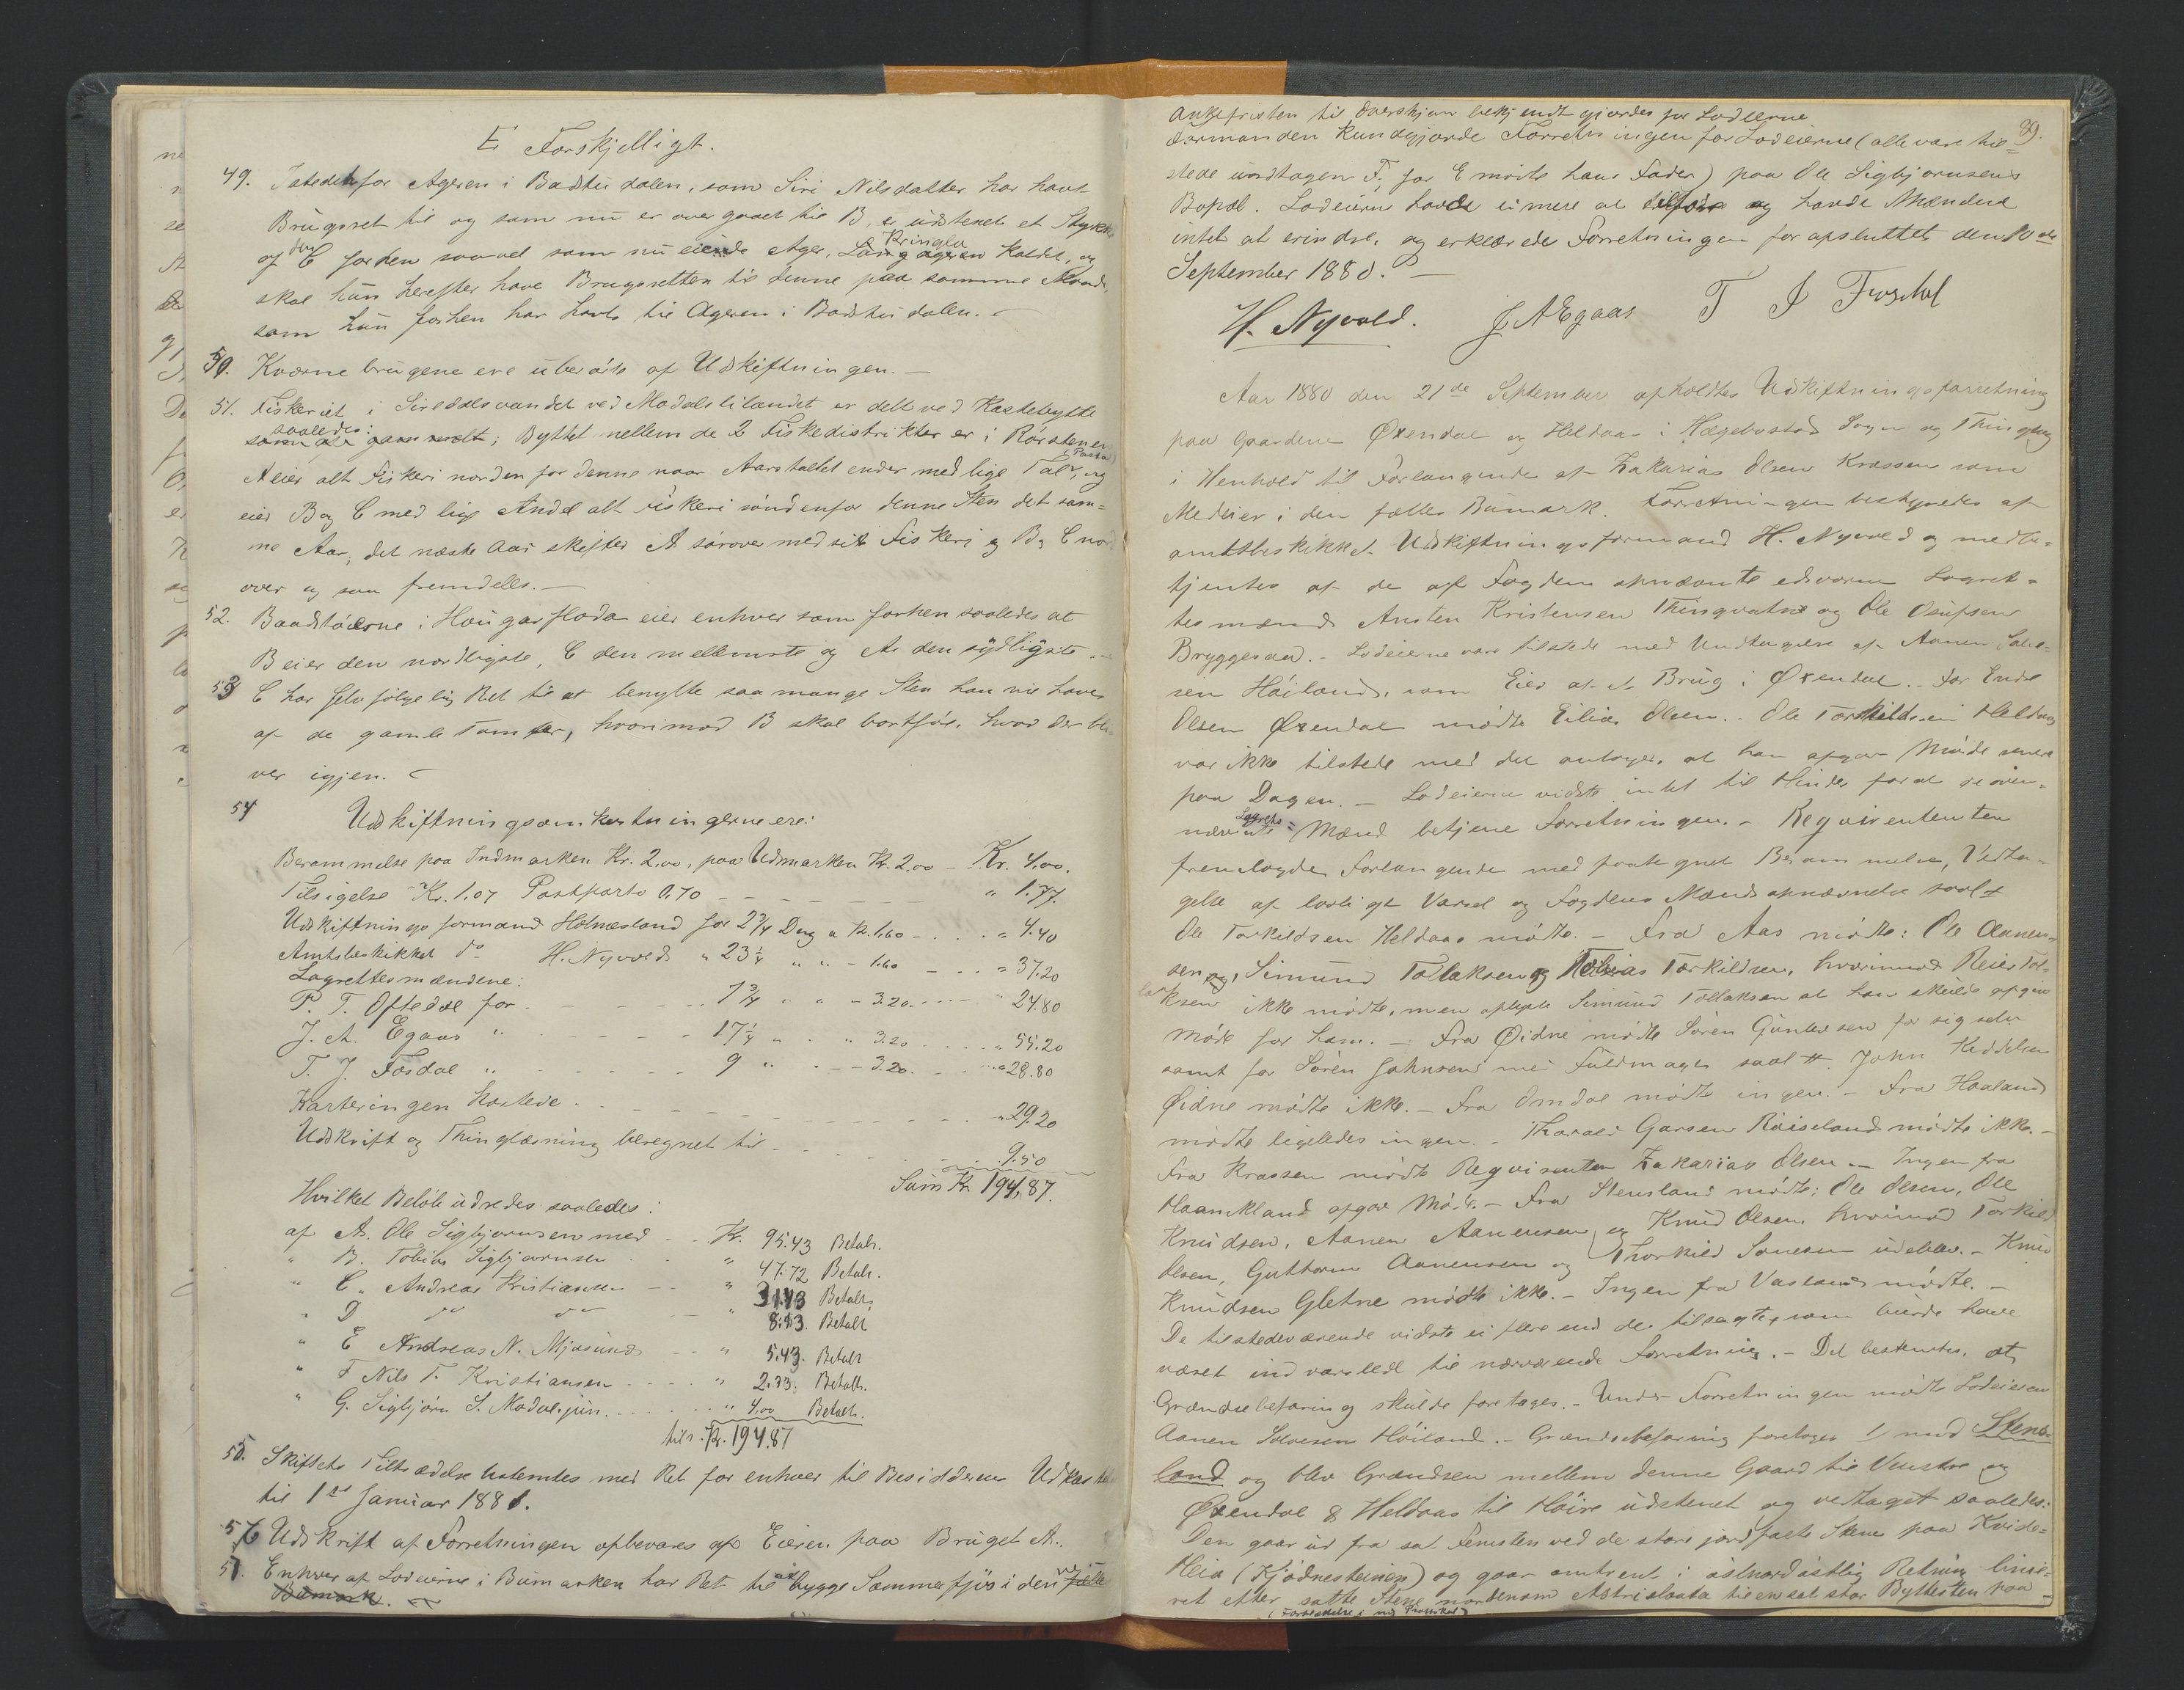 E. Forskjelligt.
49. Istedetfor Ageren i Badstudalen, som Siri Nilsdatter har havt
Brugsret til og som nu er overgaaet til B, er udstenet et Stykke
af den C forhen saavel som nu eiende Ager, Kringla kaldet, og
skal hun herefter have Brugsretten til denne paa samme Maade,
som hun forhen har havt til Ageren i Badstudalen. –
50. Kværnebrugene ere uberørte af Udskiftningen. –
51. Fiskeriet i Siredalsvandet ved Modalslilandet er delt ved Kastebytte
saaledes: Byttet mellem de 2 Fiskedistrikter er i Rørstenen
A eier alt Fiskeri norden for denne naar Aarstallet ender med lige Tal, og
eier B og C med lige Andel alt Fiskeri søndenfor denne Sten det sam=
me Aar, det næste Aar skifter A sørover med sit Fiskeri og B og C nord
over og saa fremdeles. –
52. Baadstøerne i Haugarfloda eier enhver som forhen saaledes at
B eier den nordligste, C den mellemste og A den sydligste –
53 C har selvfølgelig Ret til at benytte saa mange Sten han vil have
af de gamle Tomter, hvorimod B skal bortføre, hvad der bli
ver igjen. –
54 Udskiftningsomkostningerne ere:
Berammelse paa Indmarken Kr. 2.00, paa Udmarken Kr. 2.00 – Kr. 4.00.
Tilsigelse Kr. 1.07 Postporto 0.70 – – – " 1.77.
Udskiftningsformand Holmesland for 2 3/4 Dag a Kr. 1.60 – " 4.40
Amtsbeskikket do H. Nyvold " 23 1/4 " " – 1.60 – " 37.20
Lagrettesmændene:
P. T. Oftedal for – – 7 3/4 " " – 3.20. – " 24.80
J. A. Egaas " – – 17 1/4 " " 3.20 – " 55.20
T. J. Fosdal " – – 9 " – 3.20. – " 28.80
Karteringen kostede – – – " 29.20
Udskrift og Thinglæsning beregnet til – – 9.50
Sum Kr. 194.87.
Hvilket Beløb udredes saaledes:
af A. Ole Sigbjørnsen med – Kr. 95.43 Betalt.
" B. Tobias Sigbjørnsen " 47.72 Betalt.
" C. Andreas Kristiansen – " 31.43 Betalt,
" D do do – " 8.53. Betalt
" E Andreas N. Mjøsund – " 5.43. Betalt
" F Nils T. Kristiansen – " 2.33. Betalt.
" G. Sigbjørn S. Modal jun. – " 4.00 Betalt.
tils. Kr. 194.87
55. Skiftets Tiltrædelse bestemtes med Ret for enhver til Besidderen
til 1ste Januar 1881.
56 Udskrift af Forretningen opbevares af Eieren paa Bruget A.
57. Enhver af Lodeierne i Bumarken har Ret til at bygge Sommerfjøs i den fælle
Bumark. –
89.
Ankefristen til Overskjøn bekjendtgjordes for Lodeierne
Formanden kundgjorde Forretningen for Lodeierne (alle vare til=
stede undtagen F, for E mødte hans Fader) paa Ole Sigbjørnsens
Bopæl. Lodeierne havde ei mere at tilføie og havde Mændene
intet at erindre, og erklærede Forretningen for afsluttet den 10de
September 1880. –
H. Nyvold. J A Egaas T J Fosdal
Aar 1880 den 21de September afholdtes Udskiftningsforretning
paa Gaardene Øxendal og Heldaas i Hægebostad Sogn og Thinglag
i Henhold til Forlangende af Zakarias Olsen Krossen som
Medeier i den fælles Bumark. Forretningen bestyredes af
amtsbeskikket Udskiftningsformand H. Nyvold og medbe=
tjentes af de af Fogden opnævnte edsvorne Lagret=
tesmænd Austen Kristensen Thingvatn og Ole Olufsen
Bryggesaa. – Lodeierne vare tilstede med Undtagelse af Aanen Salve=
sen Høiland, som Eier af et Brug i Øxendal. – For Endre
Olsen Øxendal mødte Eilias Olsen. – Ole Torkildsen Heldaas
var ikke tilstede med det antoges, at han afgav Møde senere
paa Dagen. – Lodeierne vidste intet til Hinder for at de oven=
nævnte Lagrets= Mænd betjene Forretningen. – Reqvirenten
fremlagde Forlangende med paategnet Berammelse, Vedta=
gelse af lovligt Varsel og Fogdens Mandsopnævnelse
Ole Torkildsen Heldaas mødte. – Fra Aas mødte: Ole Aanen=
sen, Simund Tollaksen og Tobias Torkildsen, hvorimod Reier Tol=
laksen ikke mødte, men oplyste Simund Tollaksen at han skulde afgive
Møde for ham. – Fra Øidne mødte Søren Gundersen for sig selv
samt for Søren Johnsen med Fuldmagt John Keddelsen
Øidne mødte ikke. – Fra Omdal mødte ingen. – Fra Haaland
mødte ligeledes ingen. – Thorald Garsen Røiseland mødte ikke. –
Fra Krossen mødte Reqvirenten Zakarias Olsen. – Ingen fra
Haanekland afgav Møde. – Fra Stensland mødte: Ole Olsen, Ole
Knudsen, Aanen Aanensen og Knud Olsen, hvorimod Torkild
Olsen, Guttorm Aanensen og Thorkild Sonesen udeblev. – Knud
Knudsen Gletne mødte ikke. – Ingen fra Vasland mødte. –
De tilstedeværende vidste ei flere end de tilsagte, som burde have
været indvarslede til nærværende Forretning. – Det bestemtes, at
Grændsebefaring skulde foretages. – Under Forretningen mødte Lodeieren
Aanen Salvesen Høiland. – Grændsebefaring foretoges 1) mod Stens=
land og blev Grændsen mellem denne Gaard til Venstre og
Øxendal & Heldaas til Høire udstenet og vedtaget saaledes:
Den gaar ud fra sat Femsten ved de store jordfaste Stene paa Kvide=
Heia (Kjødnesteinen) og gaar omtrent i østnordøstlig Retning linie=
ret efter satte Stene nordenom Astrislaata til en sat stor Byttesten paa –
(Fortsættelse i ny Protokol)